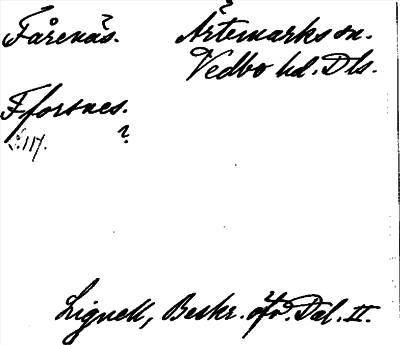 Fårenäs. Ärtemarks sn.
Vedbo hd. Dls.
Fforsnes.
S. 117. ?
Lignell, Beskr. öfv. Dal. II.